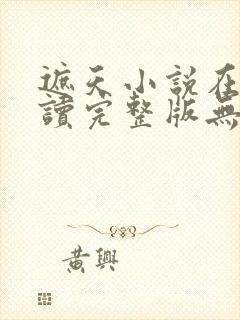 遮天小說在
讀完整版無
黃興